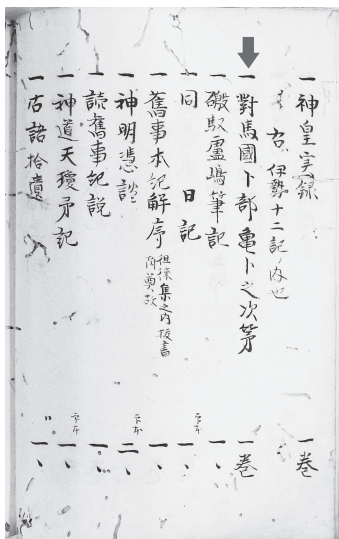 一神皇実録 一巻
右、伊勢十二記ノ内也
一對馬國卜部亀卜之次第 一巻
一磤馭盧嶋筆記 一、
一同 日記 一、
一舊事本記解序 一、
徂徠集之内抜書
一神明憑談 二、
一読舊事記説 一、
一神道天瓊矛記 一、
一古語拾遺 一、